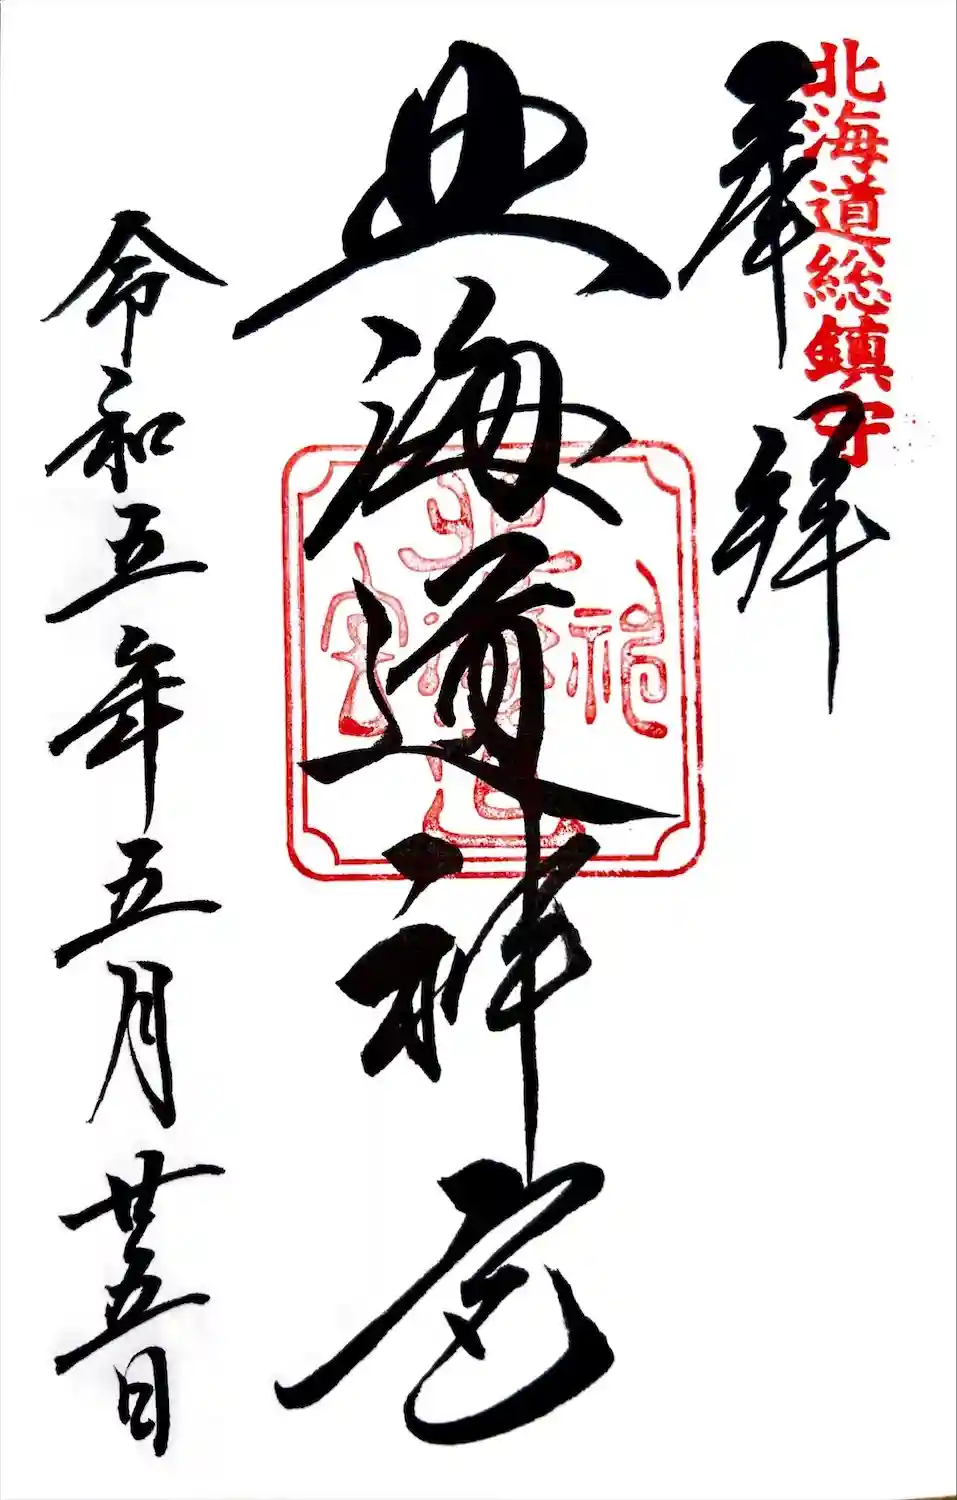 北海道総鎮守
奉拝
北海道神宮
令和五年五月廿五日